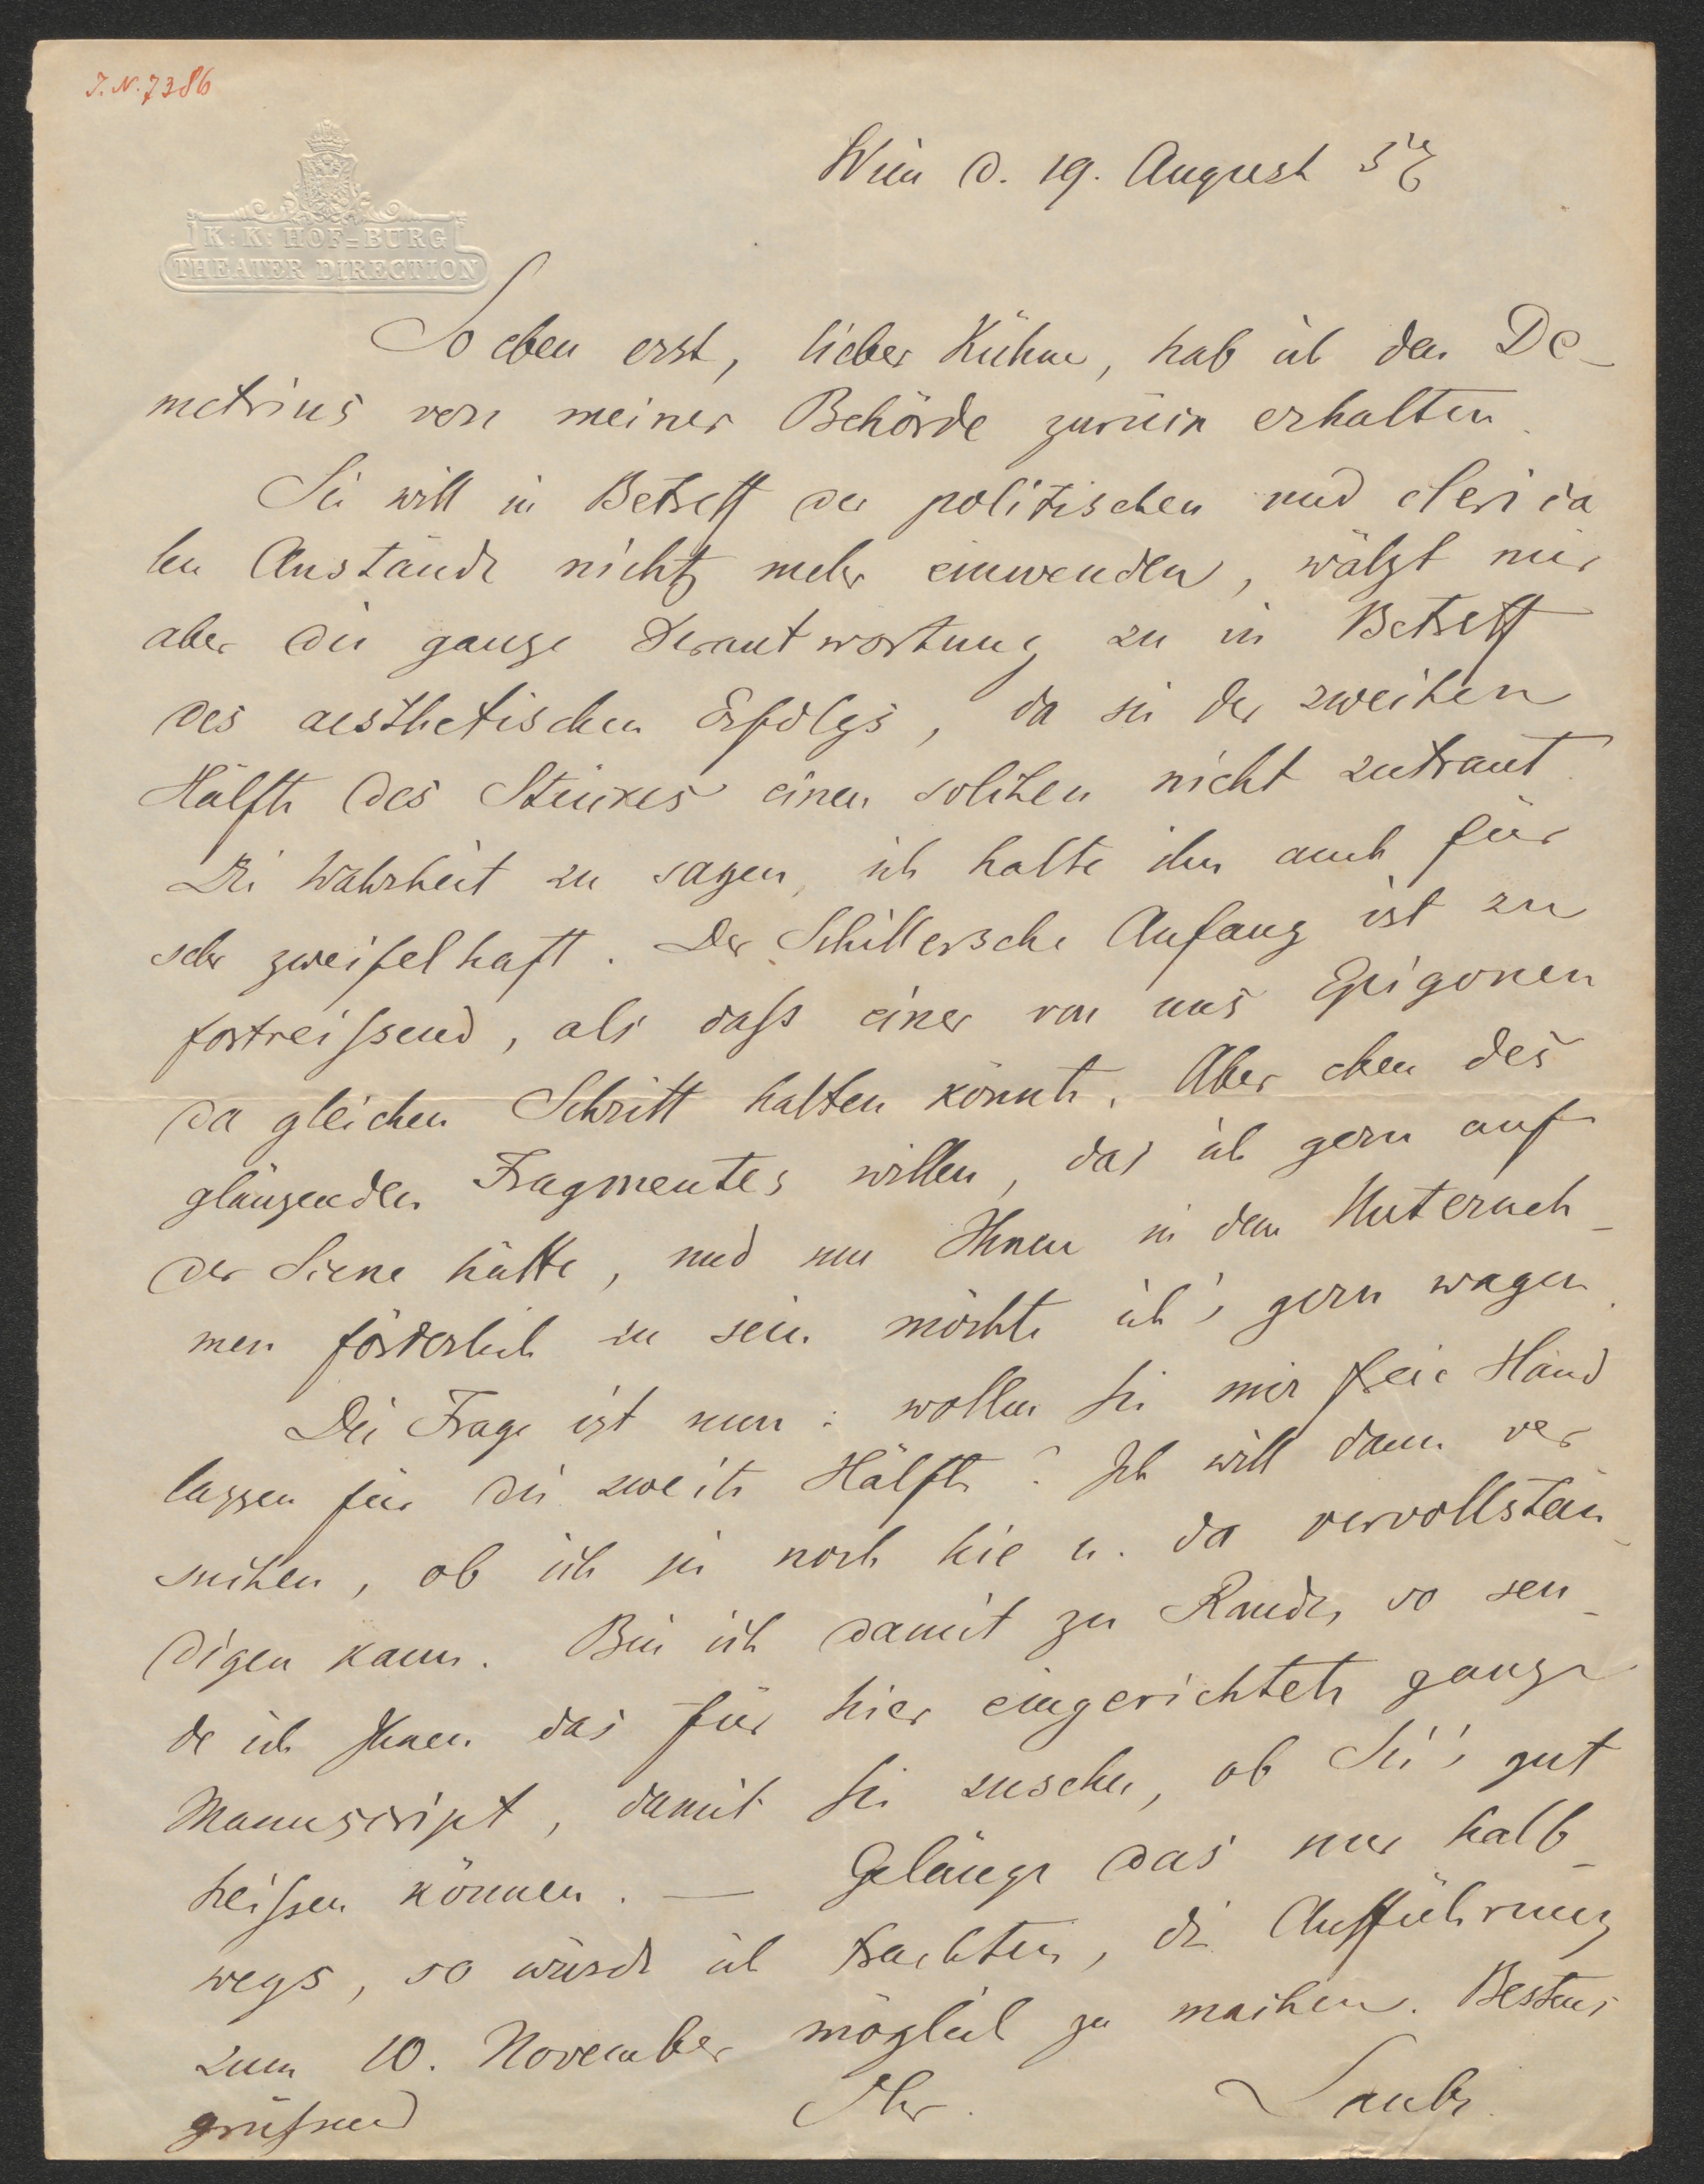 J. N. 7386
K: K: HOF=BURG
THEATER DIRECTION
Wien d. 19. August 56
So eben erst, lieber Kühne, hab ich den De-
metrius von meiner Behörde zurück erhalten.
Sie will in Betreff der politischen und clerica
len Anstände nichts mehr einwenden, wälzt mir
aber die ganze Verantwortung zu in Betreff
des aesthetischen Erfolgs, da sie der zweiten
Hälfte des Stückes einen solchen nicht zutraut.
Die Wahrheit zu sagen, ich halte ihn auch für
sehr zweifelhaft. Der Schillersche Anfang ist zu
fortreissend, als dass einer von uns Epigonen
da gleichen Schritt halten könnte. Aber eben des
glänzenden Fragmentes willen, das ich gern auf
der Scene hätte, und um Ihnen in dem Unterneh-
men förderlich zu sein möchte ich's gern wagen.
Die Frage ist nun: wollen Sie mir freie Hand
lassen für die zweite Hälfte? Ich will dann ver
suchen, ob ich sie noch hie u. da vervollstän-
digen kann. Bin ich damit zu Rande, so sen-
de ich Ihnen das für hier eingerichtete ganze
Manuscript, damit Sie zusehen, ob Sie's gut
heissen können. — Gelänge das nur halb-
wegs, so würde ich trachten, die Aufführung
zum 10. November möglich zu machen. Bestens
grüssend Ihr Laube.